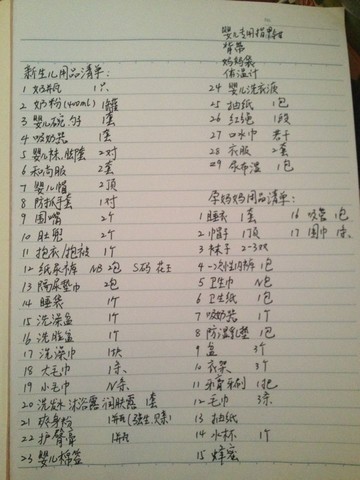 新生儿用品清单:
1 奶瓶 1只
2 奶粉(400mL) 1罐
3 婴儿碗勺 1套
4 吸奶器 1套
5 婴儿袜、脚套 2对
6 和尚服 2套
7 婴儿帽 2顶
8 防抓手套 1对
9 围嘴 2个
10 肚兜 2个
11 抱衣/抱被 1个
12 纸尿裤 NB 2包 S码 花王
13 隔尿垫巾 2包
14 睡袋 1个
15 洗澡盆 1个
16 洗脸盆 1个
17 洗澡巾 1块
18 大毛巾 1条
19 小毛巾 N条
20 洗发水 沐浴露 润肤露 1套
21 爽身粉 1瓶(强生、贝亲)
22 护臀膏 1瓶
23 婴儿棉签
婴儿专用指甲钳
背带
妈妈袋
体温计
24 婴儿洗衣液
25 抽纸 1包
26 红绳 1段
27 口水巾 若干
28 衣服 2套
29 尿布湿 1包
孕妈妈用品清单:
1 睡衣 1套
2 帽子 1顶
3 袜子 2-3双
4 一次性内裤 1包
5 卫生巾 N包
6 卫生纸 1包
7 吸奶器 1个
8 防溢乳垫 1包
9 盆 3个
10 衣架 3个
11 牙膏牙刷 1把
12 毛巾 3条
13 抽纸
14 水杯 1个
15 蜂蜜
16 吸管 1包
17 围巾 1条